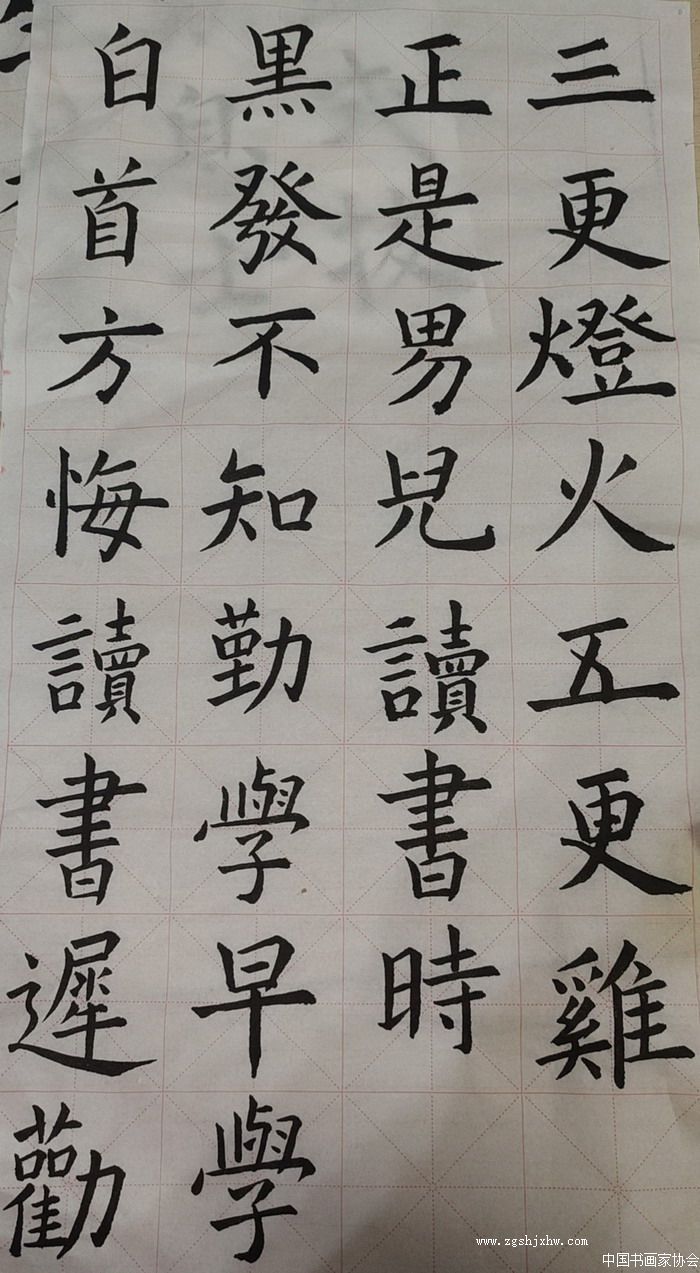 三更燈火五更雞
正是男兒讀書時
黑發不知勤學早
白首方悔讀書遲
勸學
www.zgshjxhw.com
中国书画家协会